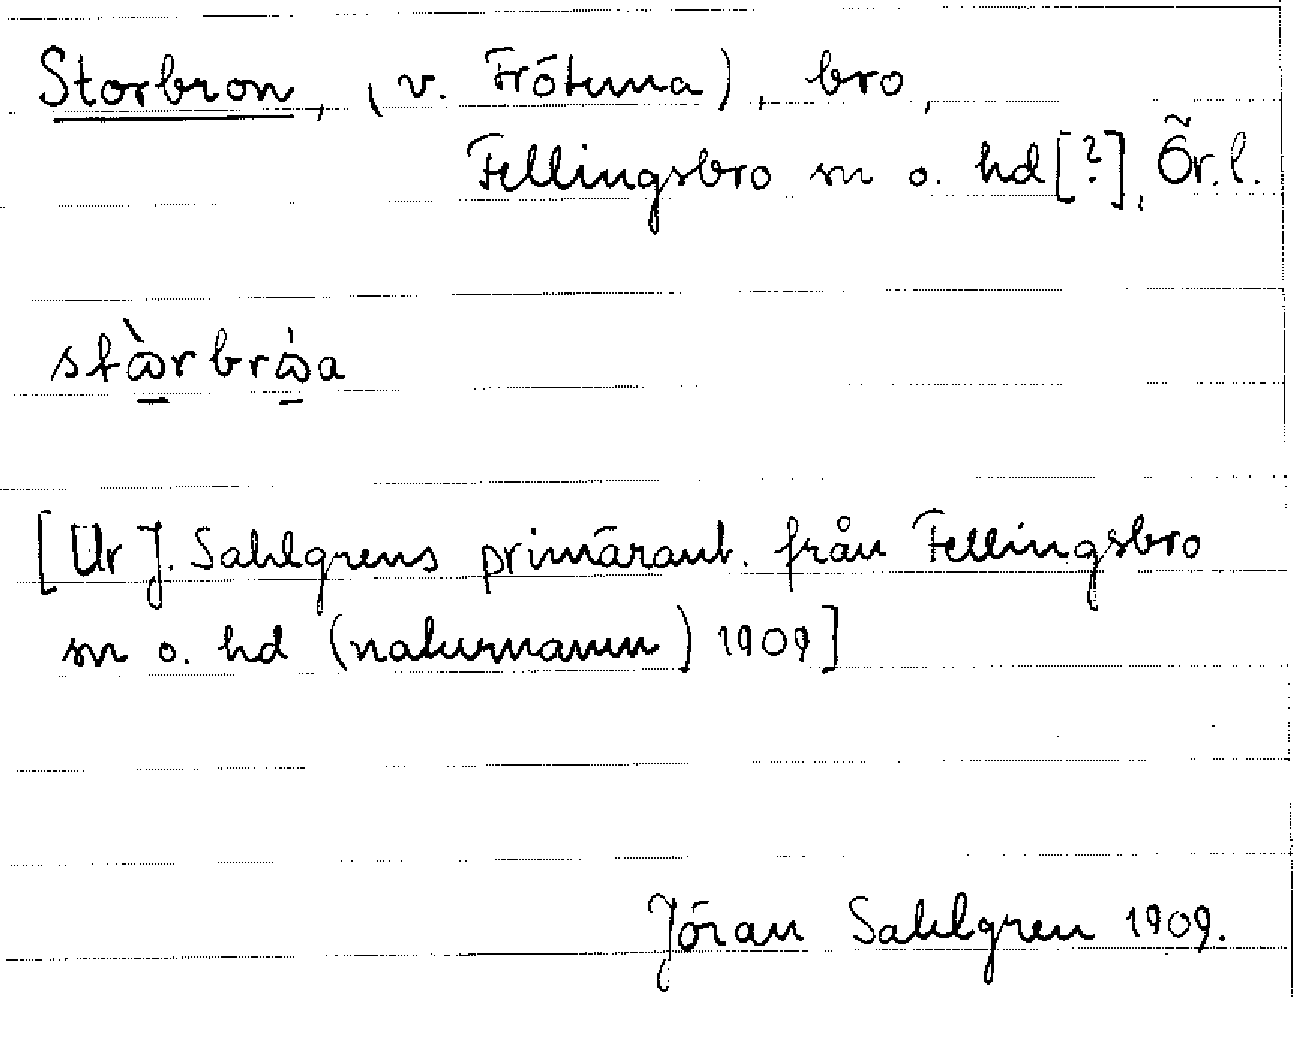 Storbron, (v. Frötuna), bro,
Fellingsbro sn o. hd [?], Ör. l.
[Ur J. Sahlgrens primärant. från Fellingsbro
sn o. hd (naturnamn) 1909]
Jöran Sahlgren 1909.